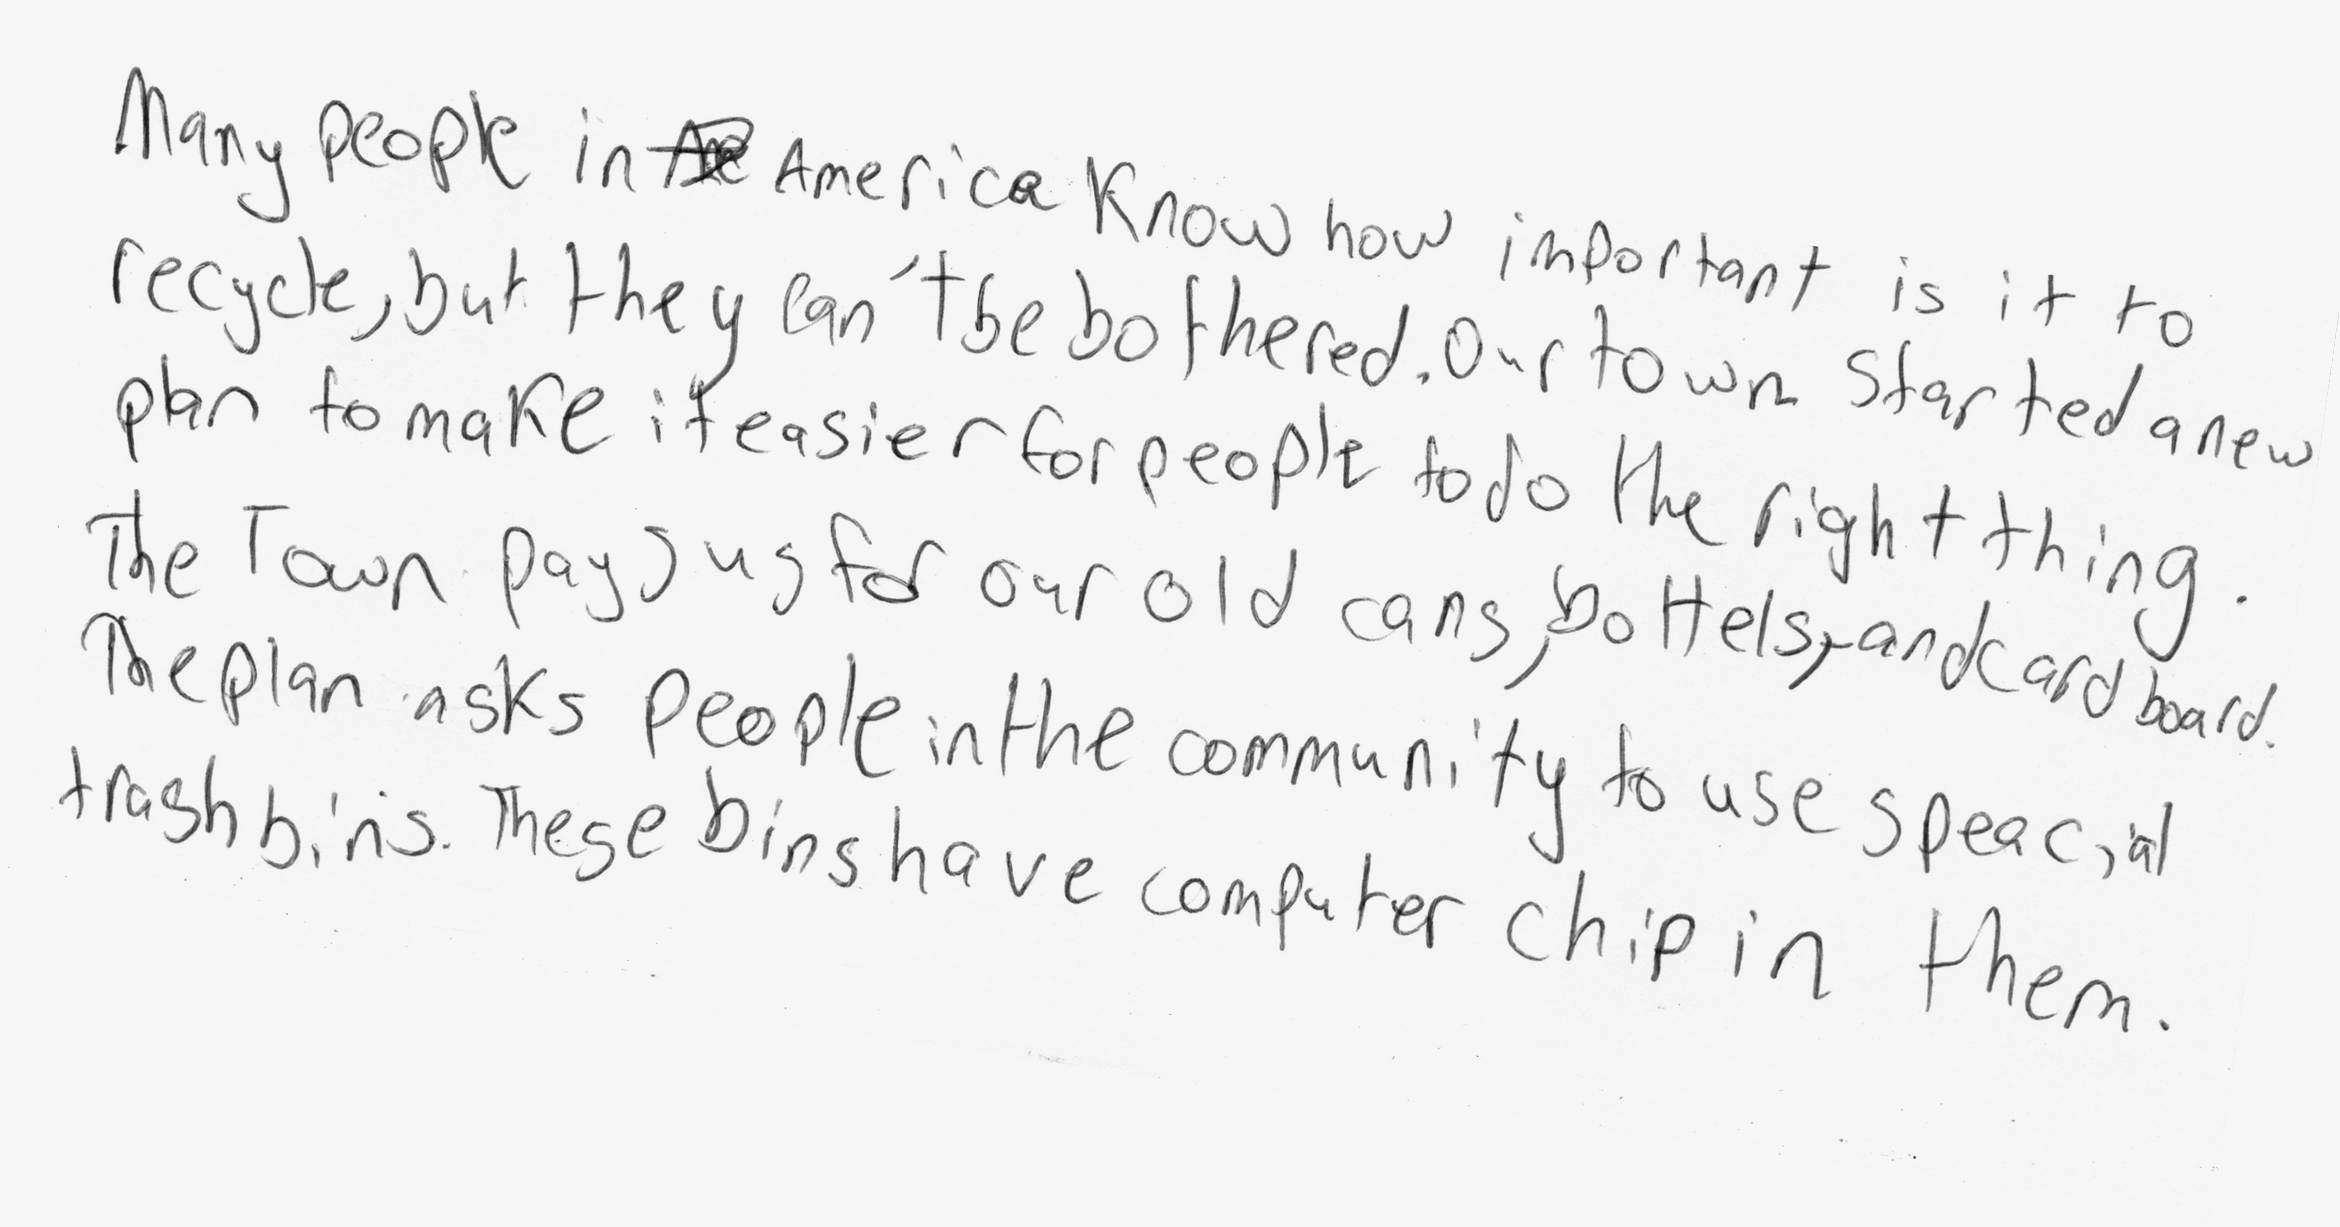 Many people in America Know how important is it to
recycle, but they can't be bothered. Our town started a new
plan to make it easier for people to do the right thing.
The Town pays us for our old cans, bottels, and cardboard.
The plan asks people in the community to use speacial
trash bins. These bins have computer chip in them.